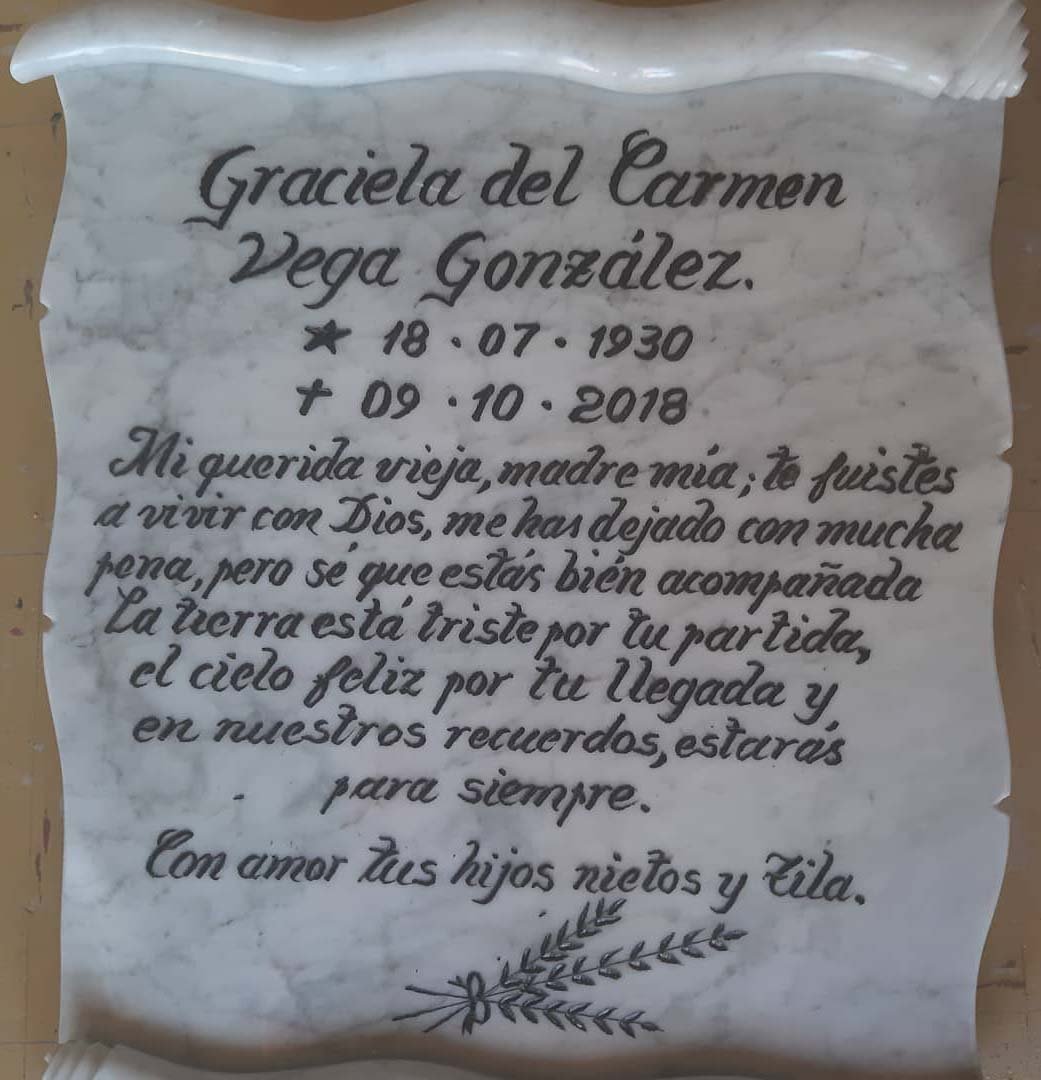 Graciela del Carmen
Vega González.
★ 18 · 07 · 1930
✝ 09 · 10 · 2018
Mi querida vieja, madre mía; te fuistes
a vivir con Dios, me has dejado con mucha
pena, pero sé que estás bién acompañada
La tierra está triste por tu partida,
el cielo feliz por tu llegada y,
en nuestros recuerdos, estarás
para siempre.
Con amor tus hijos nietos y Tila.